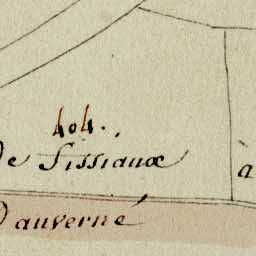 404.
De Sissiaux
à
D'auverné